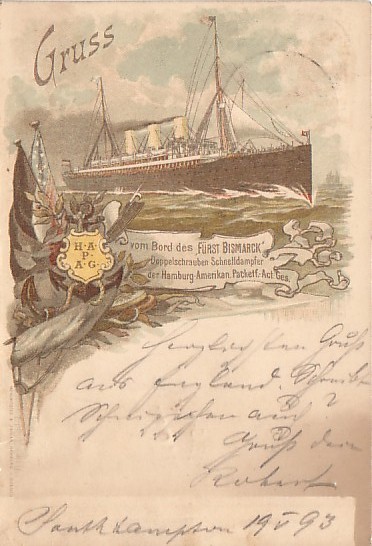 Gruss
H·A·
P·
A·G·
vom Bord des „FÜRST BISMARCK“
Doppelschrauben Schnelldampfer
der Hamburg-Amerikan. Packetf.-Act. Ges.
Herzlichsten Gruß
aus England. Schreibt
auch?
Gruß dein
Robert
Southhampton 19 V 93